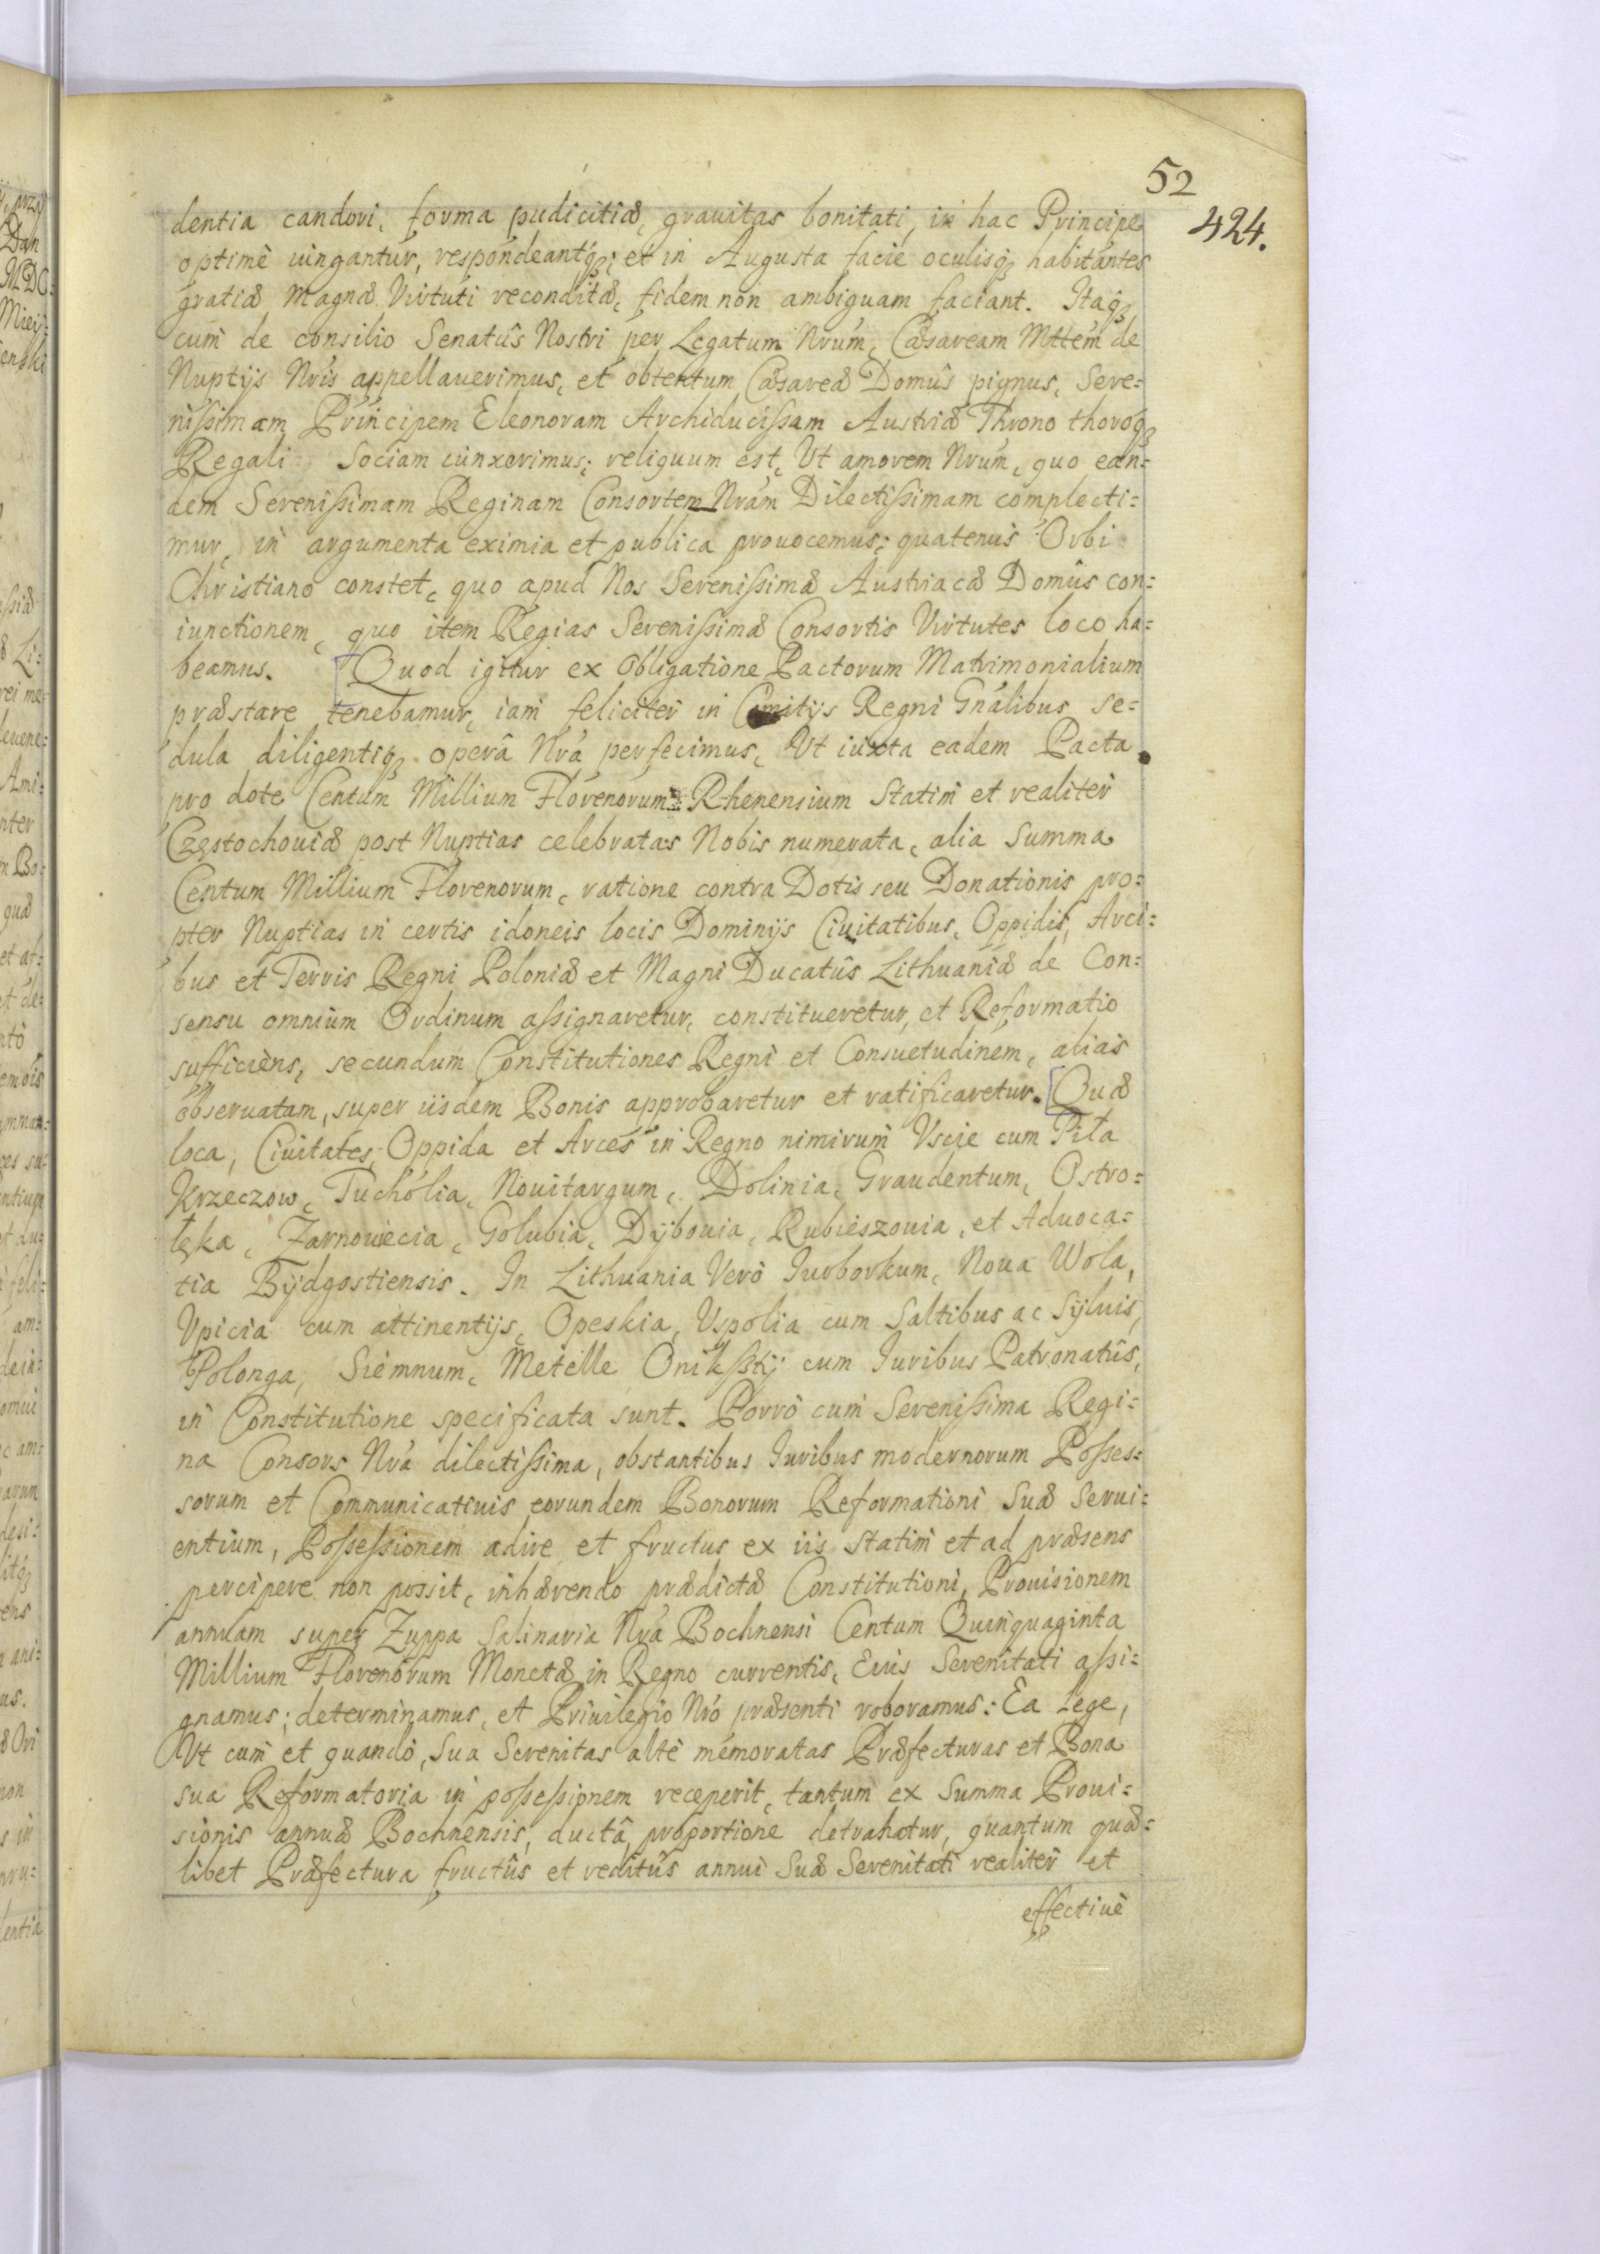 52
424.
dentia candori, forma pudicitiæ, grauitas bonitati, in hac Principe
optimè iungantur, respondeantq; et in Augusta facie oculisq; habitantes
gratiæ magnæ Virtuti reconditæ, fidem non ambiguam faciant. Itaq;
cum de consilio Senatûs Nostri per Legatum Nrum, Cæsaream Mttem de
Nuptijs Nris appellauerimus, et obtentum Cæsareæ Domûs pignus, Sere=
nissimam Principem Eleonoram Archiducissam Austriæ Throno thoroq;
Regali Sociam iunxerimus; reliquum est, Vt amorem Nrum, quo ean=
dem Serenissimam Reginam Consortem Nram Dilectissimam complecti=
mur, in argumenta eximia et publica prouocemus; quatenus Orbi
Christiano constet, quo apud Nos Serenissimæ Austriacæ Domûs con=
iunctionem, quo item Regias Serenissimæ Consortis Virtutes loco ha=
beamus. Quod igitur ex Obligatione Pactorum Matrimonialium
præstare tenebamur, iam feliciter in Comitijs Regni Gnalibus se=
dula diligentiq; operâ Nra perfecimus, Vt iuxta eadem Pacta
pro dote Centum Millium Florenorum Rhenensium statim et realiter
Częstochouiæ post Nuptias celebratas Nobis numerata, alia Summa
Centum Millium Florenorum, ratione contra Dotis seu Donationis pro=
pter Nuptias in certis idoneis locis Dominijs Ciuitatibus, Oppidis, Arci=
bus et Terris Regni Poloniæ et Magni Ducatûs Lithuaniæ de Con=
sensu omnium Ordinum assignaretur, constitueretur, et Reformatio
sufficiens, secundum Constitutiones Regni et Consuetudinem, alias
obseruatam, super iisdem Bonis approbaretur et ratificaretur. Quæ
loca, Ciuitates, Oppida et Arces in Regno nimirum Vscie cum Piła
Krzeczow, Tucholia, Nouitargum, Dolinia, Graudentum, Ostro=
łęka, Zarnowiecia, Golubia, Dybouia, Rubieszouia, et Aduoca=
tia Bydgostiensis. In Lithuania Verò Iurborkum, Noua Wola,
Vpicia cum attinentijs, Opeskia, Vspolia cum Saltibus ac Syluis,
Polonga, Siemnum, Metelle Onikssty cum Iuribus Patronatûs,
in Constitutione specificata sunt. Porrò cum Serenissima Regi=
na Consors Nra dilectissima, obstantibus Iuribus modernorum Posses=
sorum et Communicatiuis eorundem Bonorum Reformationi Suæ Serui=
entium, Possessionem adire et fructus ex iis statim et ad præsens
percipere non possit, inhærendo prædictæ Constitutioni, Prouisionem
annuam super Zuppa Salinaria Nra Bochnensi Centum Quinquaginta
Millium Florenorum Monetæ in Regno currentis, Eius Serenitati assi=
gnamus; determinamus, et Priuilegio Nro præsenti roboramus: Ea Lege,
Vt cum et quando, Sua Serenitas altè memoratas Præfecturas et Bona
sua Reformatoria in possessionem receperit, tantum ex Summa Proui=
sionis annuæ Bochnensis, ductâ proportione detrahatur, quantum quæ=
libet Præfectura fructûs et reditûs annui Suæ Serenitati realiter et
effectiuè